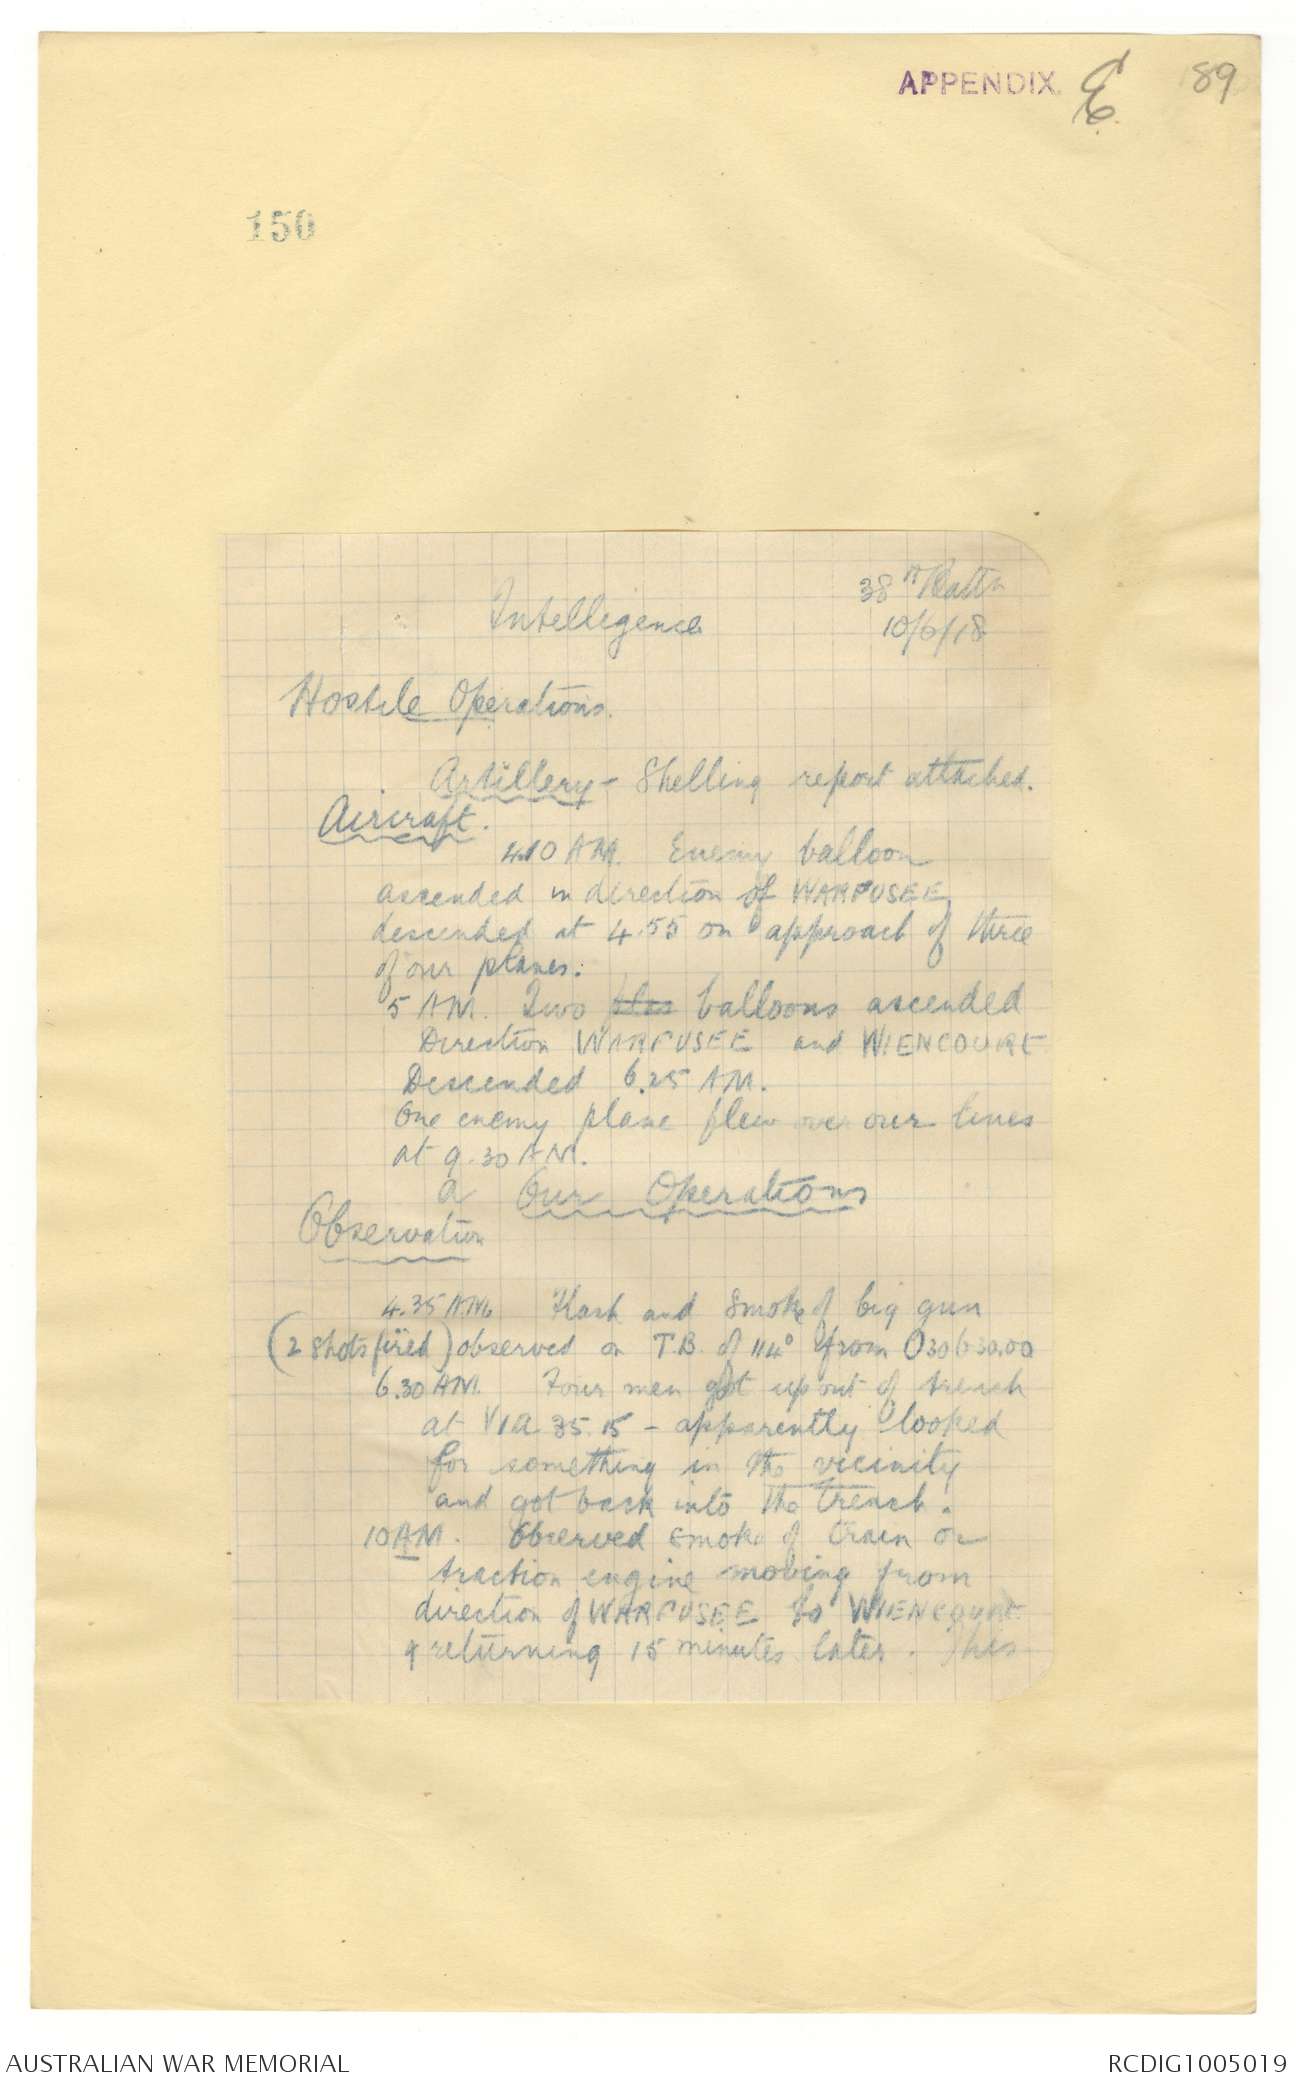 APPENDIX. E. 89
150
38th Battn
Intelligence
10/6/18
Hostile Operations.
Artillery - Shelling report attached.
Aircraft.
4.10 AM. Enemy balloon
ascended in direction of WARFUSEE
descended at 4.55 on approach of three
of our planes.
5 AM. Two balloons ascended
Direction WARFUSEE and WIENCOURT
Descended 6.25 AM.
One enemy plane flew over our lines
at 9.30 AM.
a Our Operations
Observation
4.35 AM. Flash and smoke of big gun
(2 shots fired) observed on T.B. of 114° from O30b30.00
6.30 AM. Four men got up out of trench
at V1a 35.15 - apparently looked
for something in the vicinity
and got back into the trench.
10 AM. Observed smoke of train or
traction engine moving from
direction of WARFUSEE to WIENCOURT
& returning 15 minutes later. This
AUSTRALIAN WAR MEMORIAL
RCDIG1005019